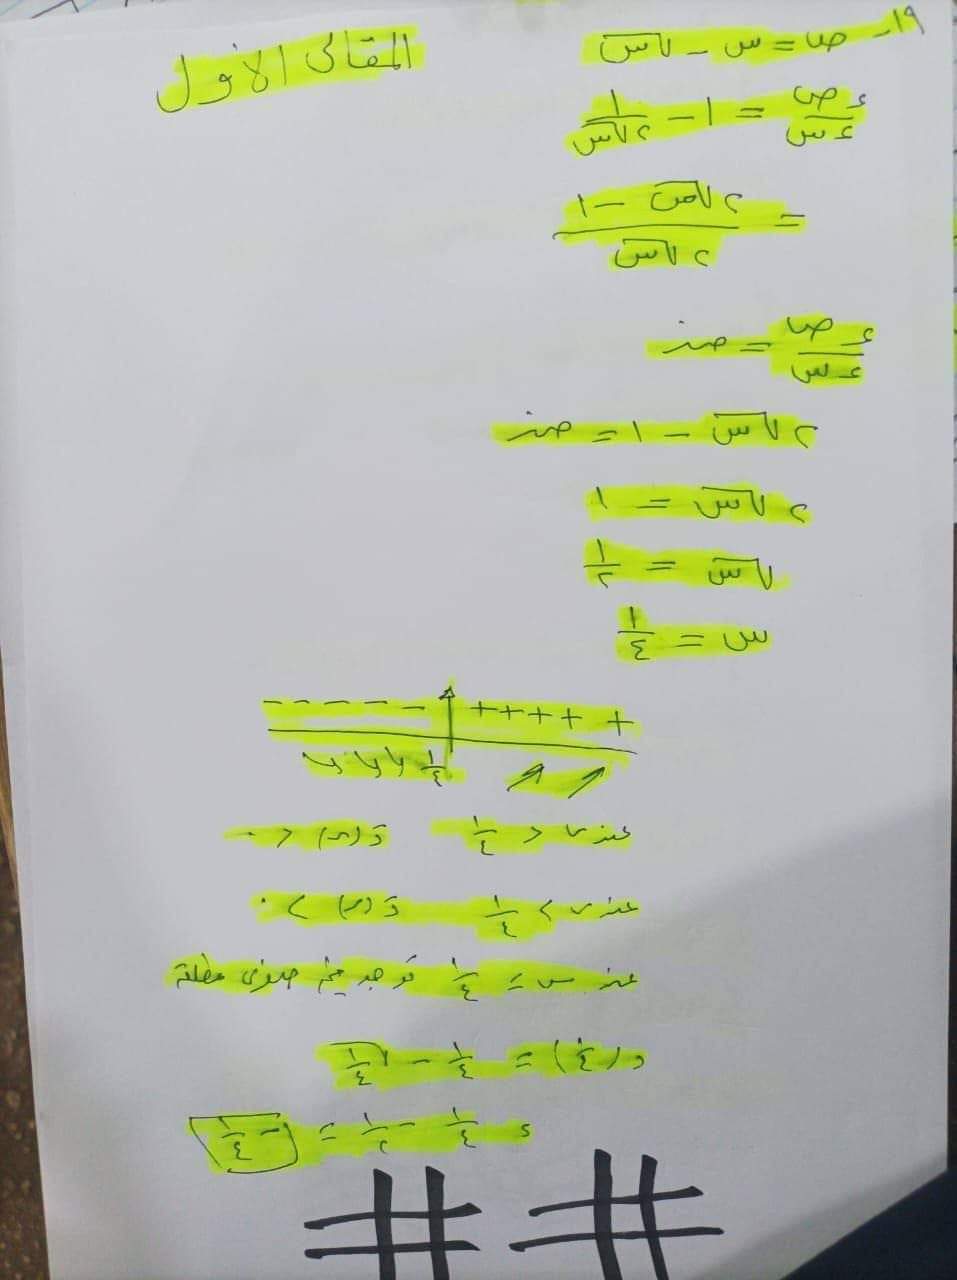 المقالى الاول
١٩- ص = س - √س
ءص/ءس = ١ - ١/٢√س
= ٢√س - ١ / ٢√س
ءص/ءس = صفر
٢√س - ١ = صفر
٢√س = ١
√س = ١/٢
س = ١/٤
- - - - - + + + + +
١/٤
عند س > ١/٤ دَ(س) > ٠
عند س < ١/٤ دَ(س) < ٠
عند س = ١/٤ توجد قيم صغرى مطلقة
د(١/٤) = ١/٤ - √١/٤
= ١/٤ - ١/٢ = -١/٤